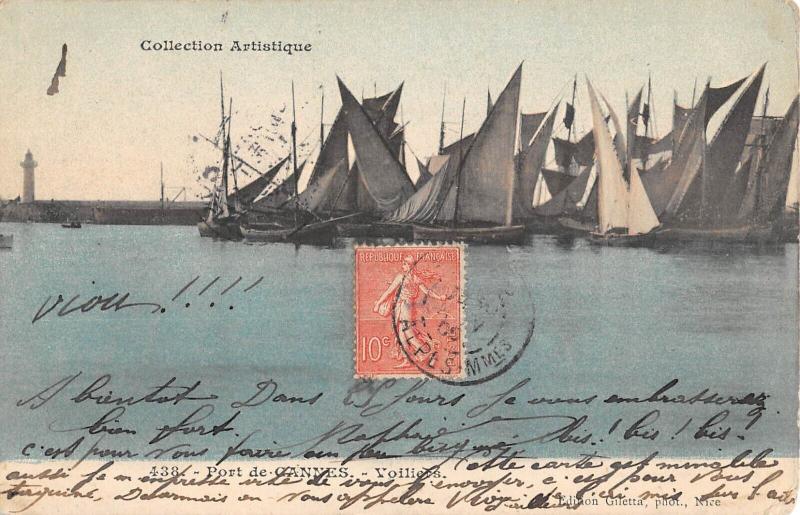 Collection Artistique
viou !!!!
REPUBLIQUE FRANÇAISE
10c
ALPES MMES
A bientot Dans 15 jours Je vous embrasserez
bien fort. Raphaël bis! bis! bis-
c'est pour vous faire un peu
438. - Port de CANNES. - Voiliers.
Cette carte est minable
aussi Je m'empresse de vous l'envoyer, c'est pour vous
taquiner, Desormais on vous appelera
Edition Giletta, phot., Nice